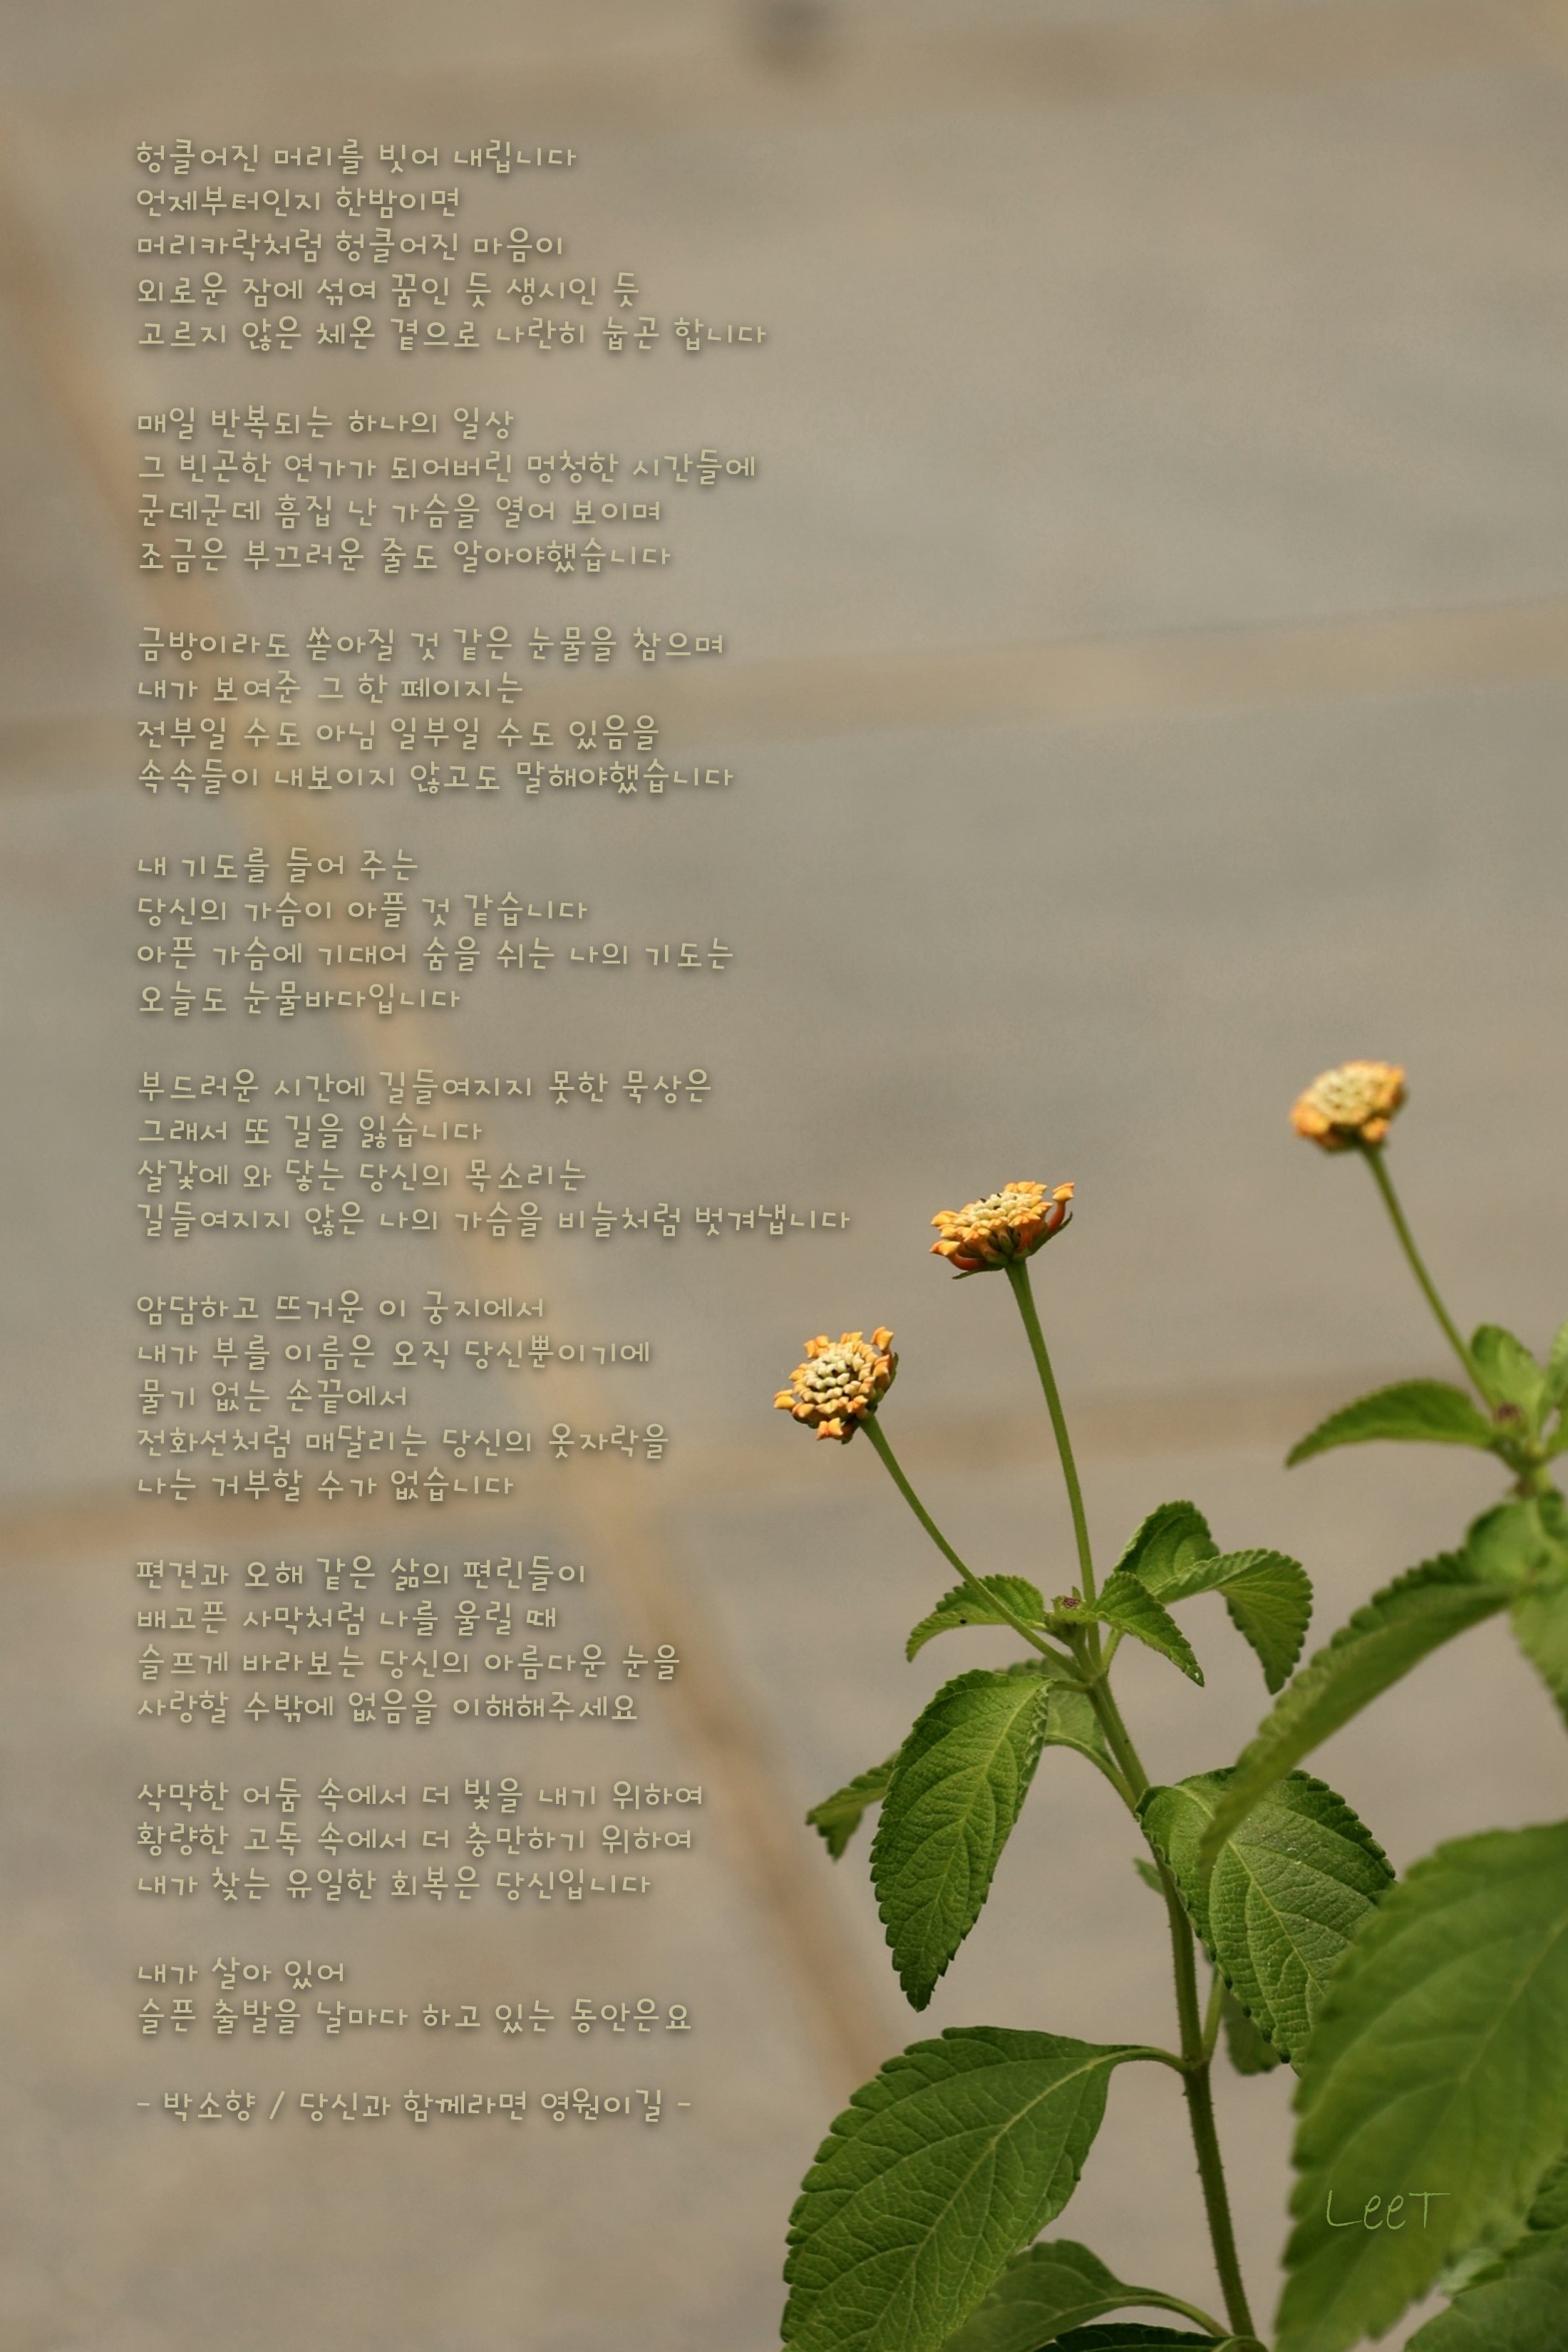 헝클어진 머리를 빗어 내립니다
언제부터인지 한밤이면
머리카락처럼 헝클어진 마음이
외로운 잠에 섞여 꿈인 듯 생시인 듯
고르지 않은 체온 곁으로 나란히 눕곤 합니다
매일 반복되는 하나의 일상
그 빈곤한 연가가 되어버린 멍청한 시간들에
군데군데 흠집 난 가슴을 열어 보이며
조금은 부끄러운 줄도 알아야했습니다
금방이라도 쏟아질 것 같은 눈물을 참으며
내가 보여준 그 한 페이지는
전부일 수도 아님 일부일 수도 있음을
속속들이 내보이지 않고도 말해야했습니다
내 기도를 들어 주는
당신의 가슴이 아플 것 같습니다
아픈 가슴에 기대어 숨을 쉬는 나의 기도는
오늘도 눈물바다입니다
부드러운 시간에 길들여지지 못한 묵상은
그래서 또 길을 잃습니다
살갗에 와 닿는 당신의 목소리는
길들여지지 않은 나의 가슴을 비늘처럼 벗겨냅니다
암담하고 뜨거운 이 궁지에서
내가 부를 이름은 오직 당신뿐이기에
물기 없는 손끝에서
전화선처럼 매달리는 당신의 옷자락을
나는 거부할 수가 없습니다
편견과 오해 같은 삶의 편린들이
배고픈 사막처럼 나를 울릴 때
슬프게 바라보는 당신의 아름다운 눈을
사랑할 수밖에 없음을 이해해주세요
삭막한 어둠 속에서 더 빛을 내기 위하여
황량한 고독 속에서 더 충만하기 위하여
내가 찾는 유일한 회복은 당신입니다
내가 살아 있어
슬픈 출발을 날마다 하고 있는 동안은요
- 박소향 / 당신과 함께라면 영원이길 -
LeeT